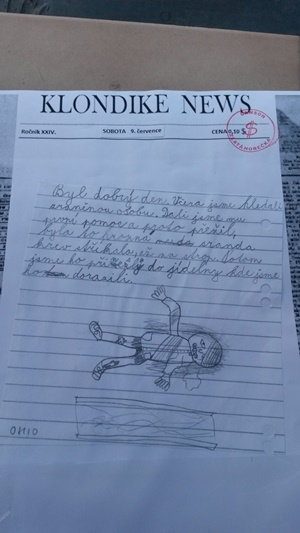 KLONDIKE NEWS
Ročník XXIV.
SOBOTA 9. července
CENA 0,10 $
Byl dobrý den. Včera jsme hledali
zraněnou osobu. Dali jsme mu
první pomoc a
byla to hrozná sranda
krev stříkala, až na strop. Potom
jsme ho do jídelny kde jsme
ho dorazili.
OHIO